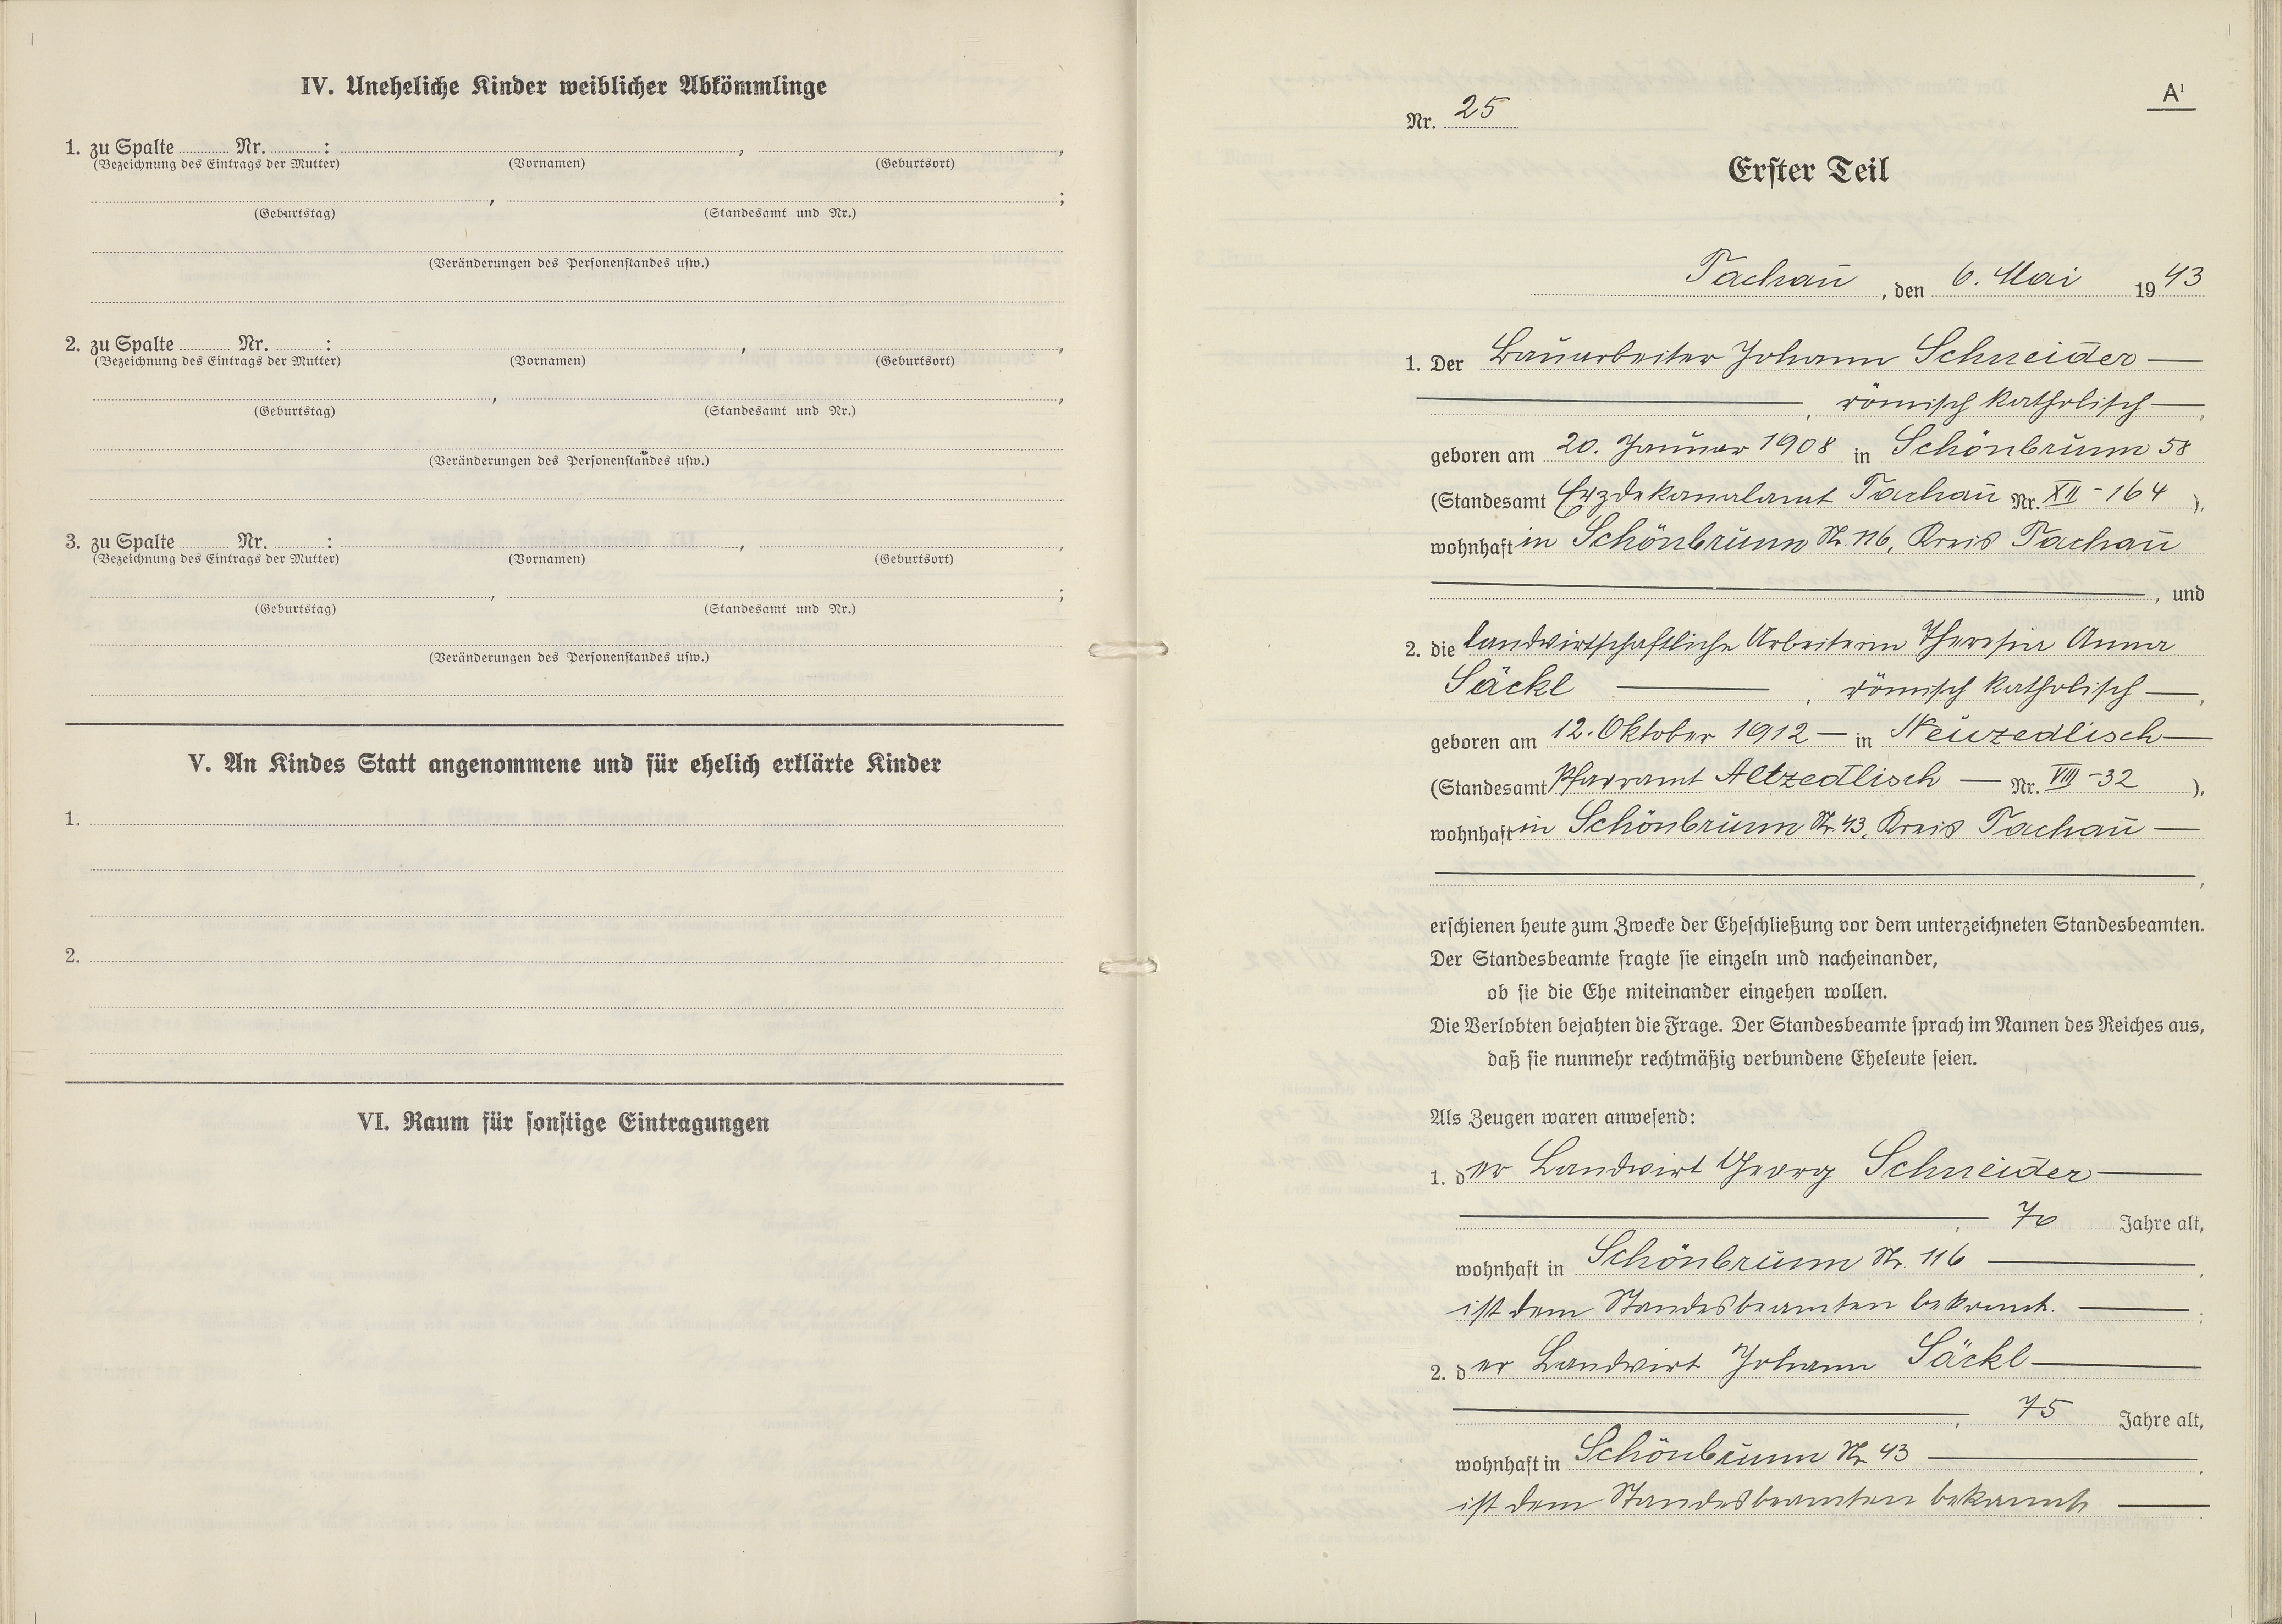 IV. Uneheliche Kinder weiblicher Abkömmlinge
1. zu Spalte ........ Nr. ........ : ........ , ........ ,
(Bezeichnung des Eintrags der Mutter) (Vornamen) (Geburtsort)
........ , ........ ;
(Geburtstag) (Standesamt und Nr.)
(Veränderungen des Personenstandes usw.)
2. zu Spalte ........ Nr. ........ : ........ , ........ ,
(Bezeichnung des Eintrags der Mutter) (Vornamen) (Geburtsort)
........ , ........ ,
(Geburtstag) (Standesamt und Nr.)
(Veränderungen des Personenstandes usw.)
3. zu Spalte ........ Nr. ........ : ........ , ........ ,
(Bezeichnung des Eintrags der Mutter) (Vornamen) (Geburtsort)
........ , ........ ;
(Geburtstag) (Standesamt und Nr.)
(Veränderungen des Personenstandes usw.)
V. An Kindes Statt angenommene und für ehelich erklärte Kinder
1.
2.
VI. Raum für sonstige Eintragungen
A¹
Nr. 25
Erster Teil
Tachau , den 6. Mai 1943
1. Der Bauarbeiter Johann Schneider —
— , römisch katholisch — ,
geboren am 20. Januar 1908 in Schönbrunn 58
(Standesamt Erzdekanalamt Tachau Nr. XII - 164 ),
wohnhaft in Schönbrunn Nr. 116, Kreis Tachau
— , und
2. die landwirtschaftliche Arbeiterin Theresia Anna
Säckl — , römisch katholisch — ,
geboren am 12. Oktober 1912 — in Neuzedlisch —
(Standesamt Pfarramt Altzedlisch — Nr. VIII - 32 ),
wohnhaft in Schönbrunn Nr. 43, Kreis Tachau —
— ,
erschienen heute zum Zwecke der Eheschließung vor dem unterzeichneten Standesbeamten.
Der Standesbeamte fragte sie einzeln und nacheinander,
ob sie die Ehe miteinander eingehen wollen.
Die Verlobten bejahten die Frage. Der Standesbeamte sprach im Namen des Reiches aus,
daß sie nunmehr rechtmäßig verbundene Eheleute seien.
Als Zeugen waren anwesend:
1. der Landwirt Georg Schneider —
— , 70 Jahre alt,
wohnhaft in Schönbrunn Nr. 116 — ,
ist dem Standesbeamten bekannt. — ;
2. der Landwirt Johann Säckl —
— , 75 Jahre alt,
wohnhaft in Schönbrunn Nr 43 — ,
ist dem Standesbeamten bekannt —